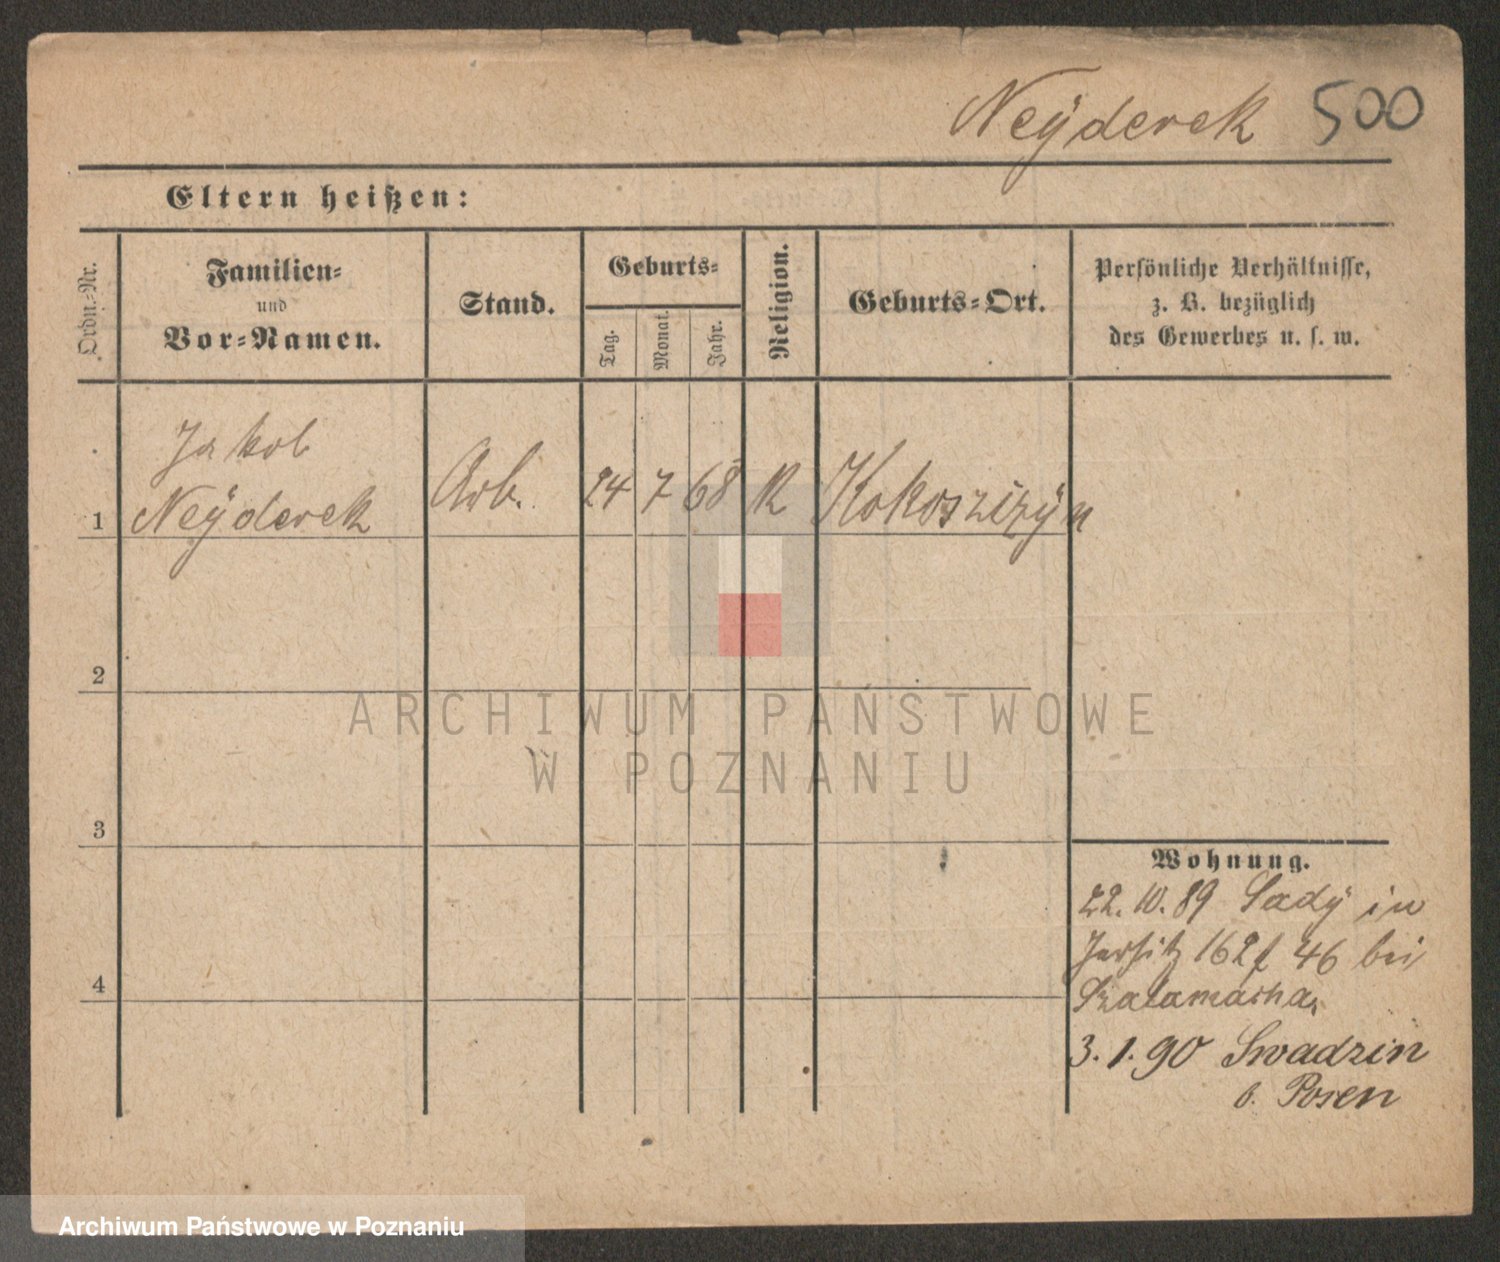 Neÿderek 500
Eltern heißen:
Ordn.-Nr.
Familien-
und
Vor-Namen.
Stand.
Geburts-
Tag.
Monat.
Jahr.
Religion.
Geburts-Ort.
Persönliche Verhältnisse,
z. B. bezüglich
des Gewerbes u. s. w.
Jakob
1 Neÿderek Arb. 24 7 68 K Kokoszizÿn
2
ARCHIWUM PAŃSTWOWE
W POZNANIU
3
Wohnung.
22. 10. 89 Sadÿ in
Jersitz 162 46 bei
4
3. 1. 90 Swadzin
b. Posen
Archiwum Państwowe w Poznaniu